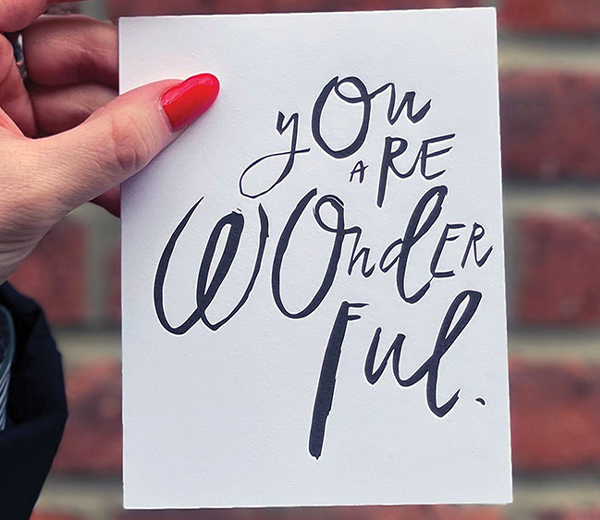 you
ARE
WOnderER